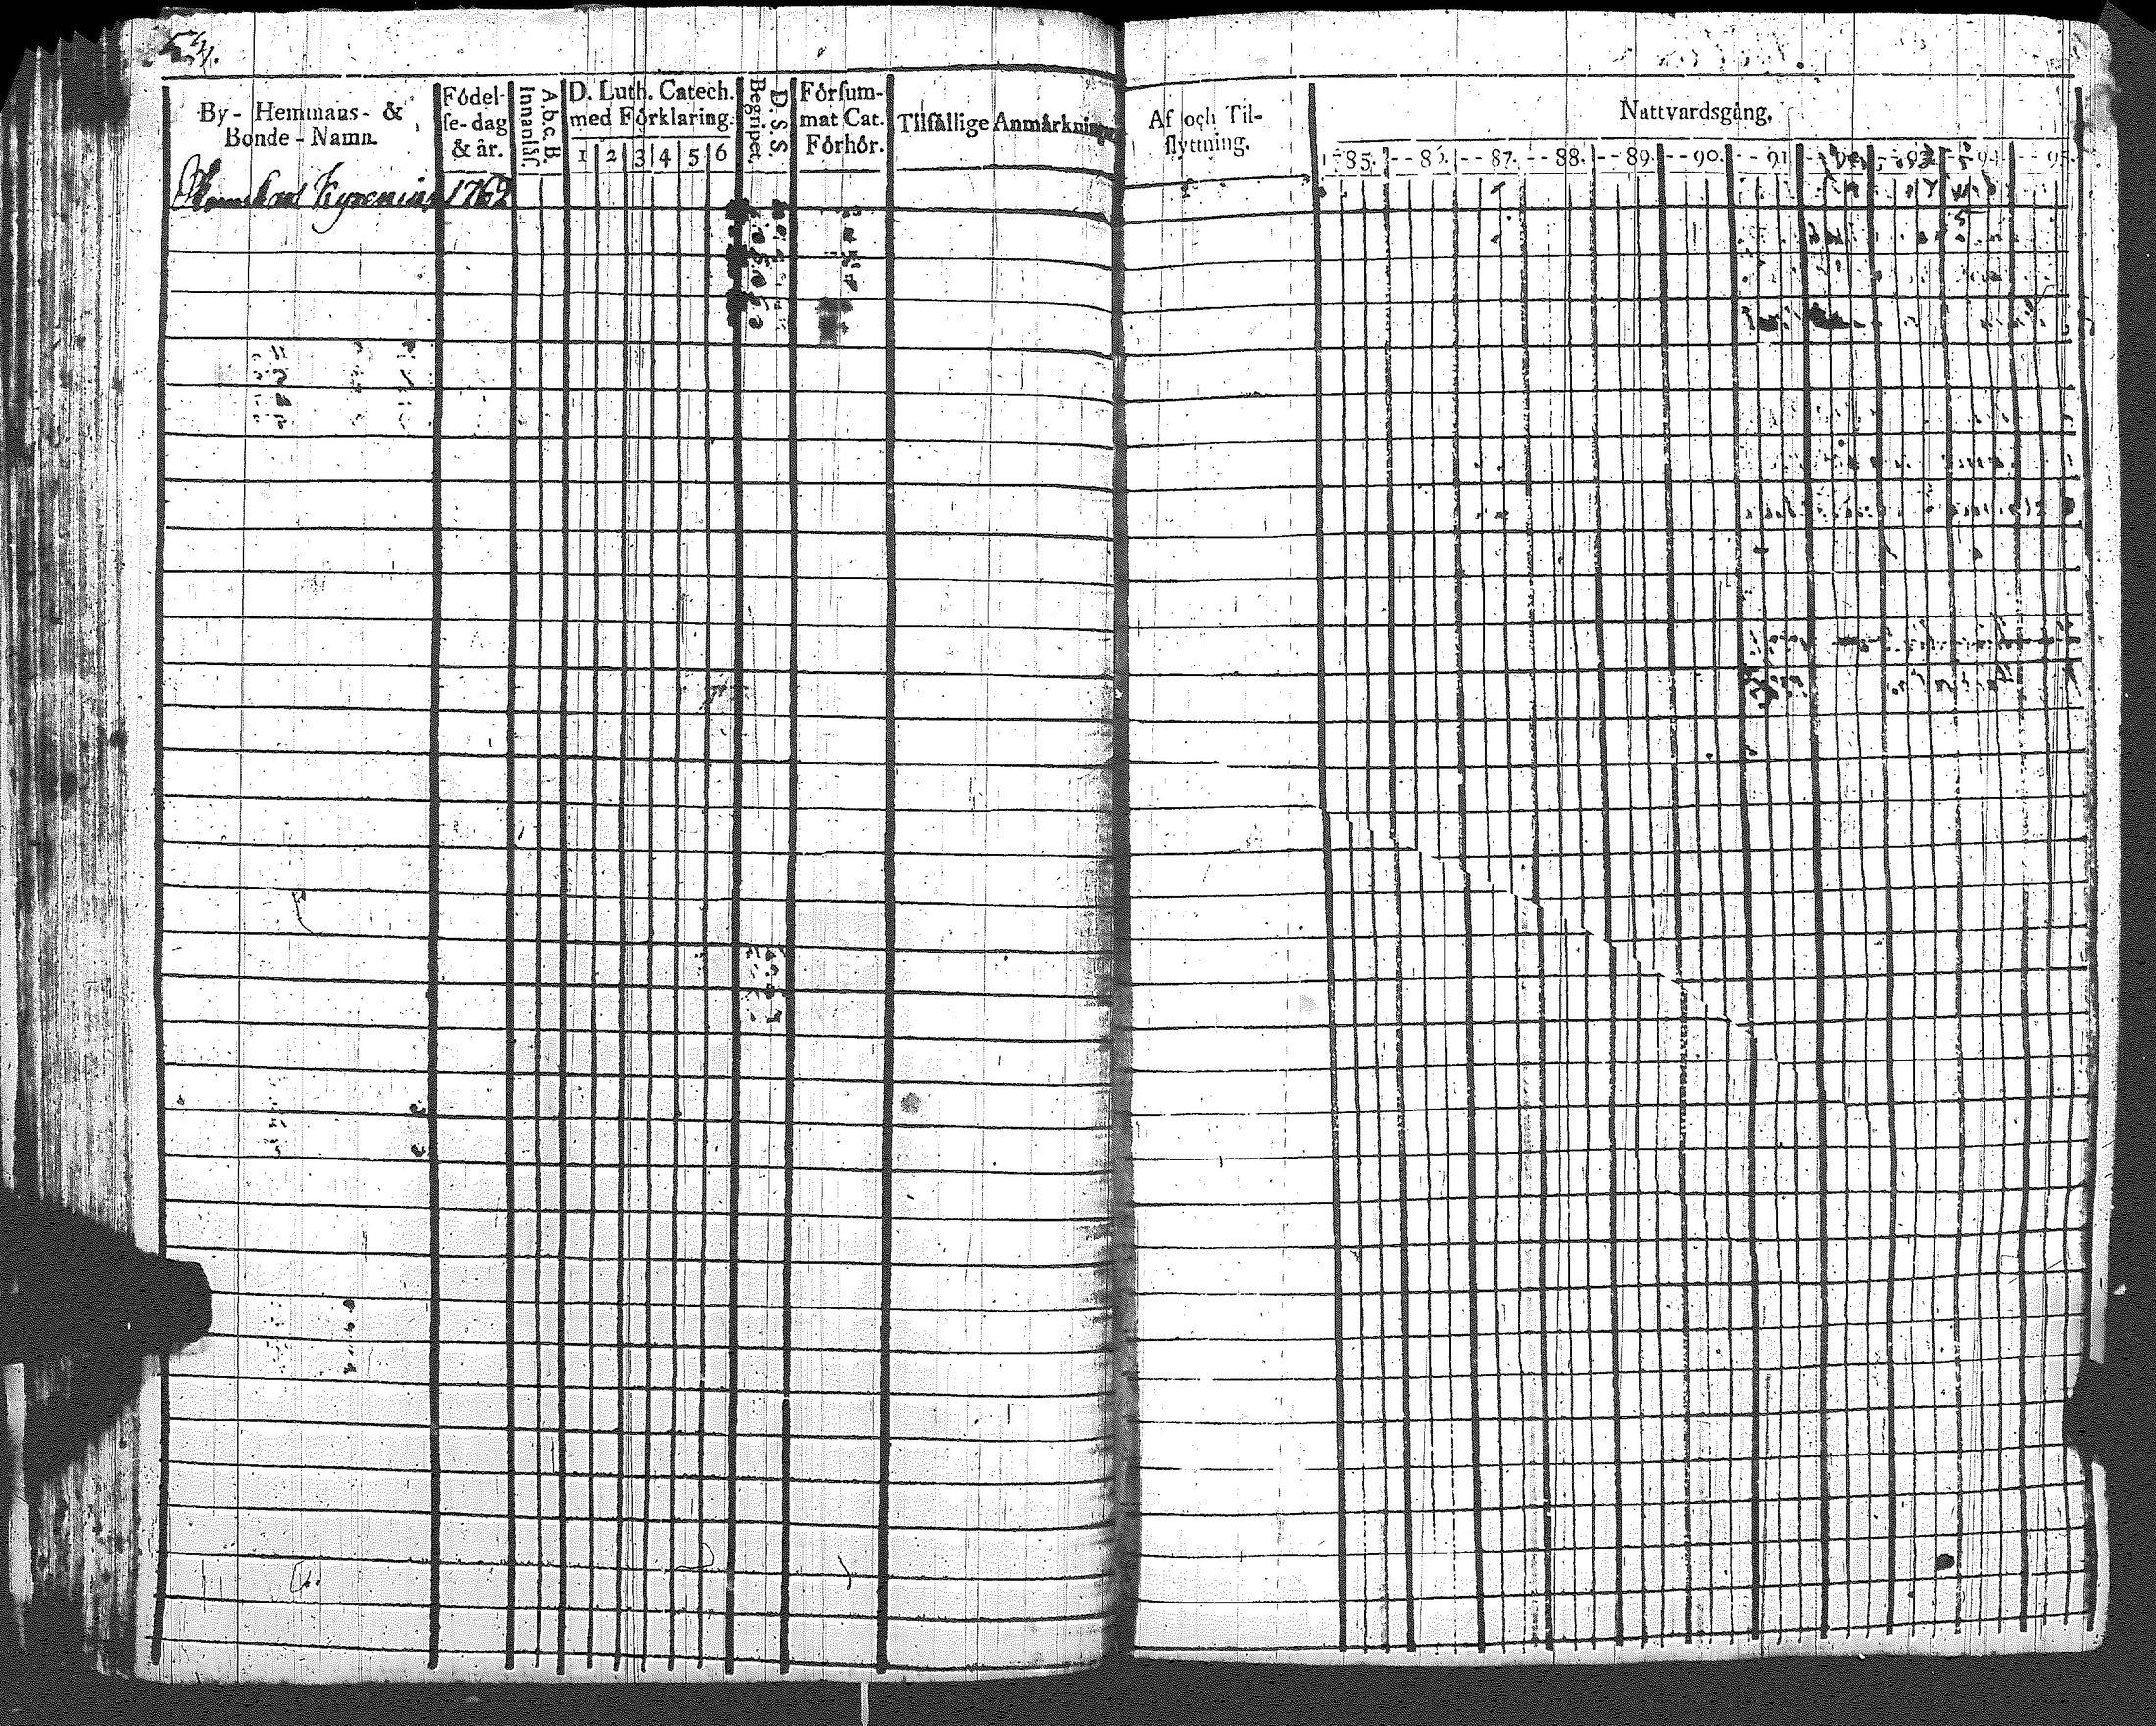 54.
By- Hemmans- &
Bonde-Namn.
Födel-
se-dag
& år.
A.b.c.B.
Innanläs.
D. Luth. Catech.
med Förklaring.
1 2 3 4 5 6
D. S. S.
Begripet.
Försum-
mat Cat.
Förhör.
Tilfällige Anmärkning
1762
Af och Til-
flyttning.
Nattvardsgång.
1785. - - 86. - - 87. - - 88. - - 89. - - 90. - - 91 - - 92 - - 93 - - 94 - - 95.